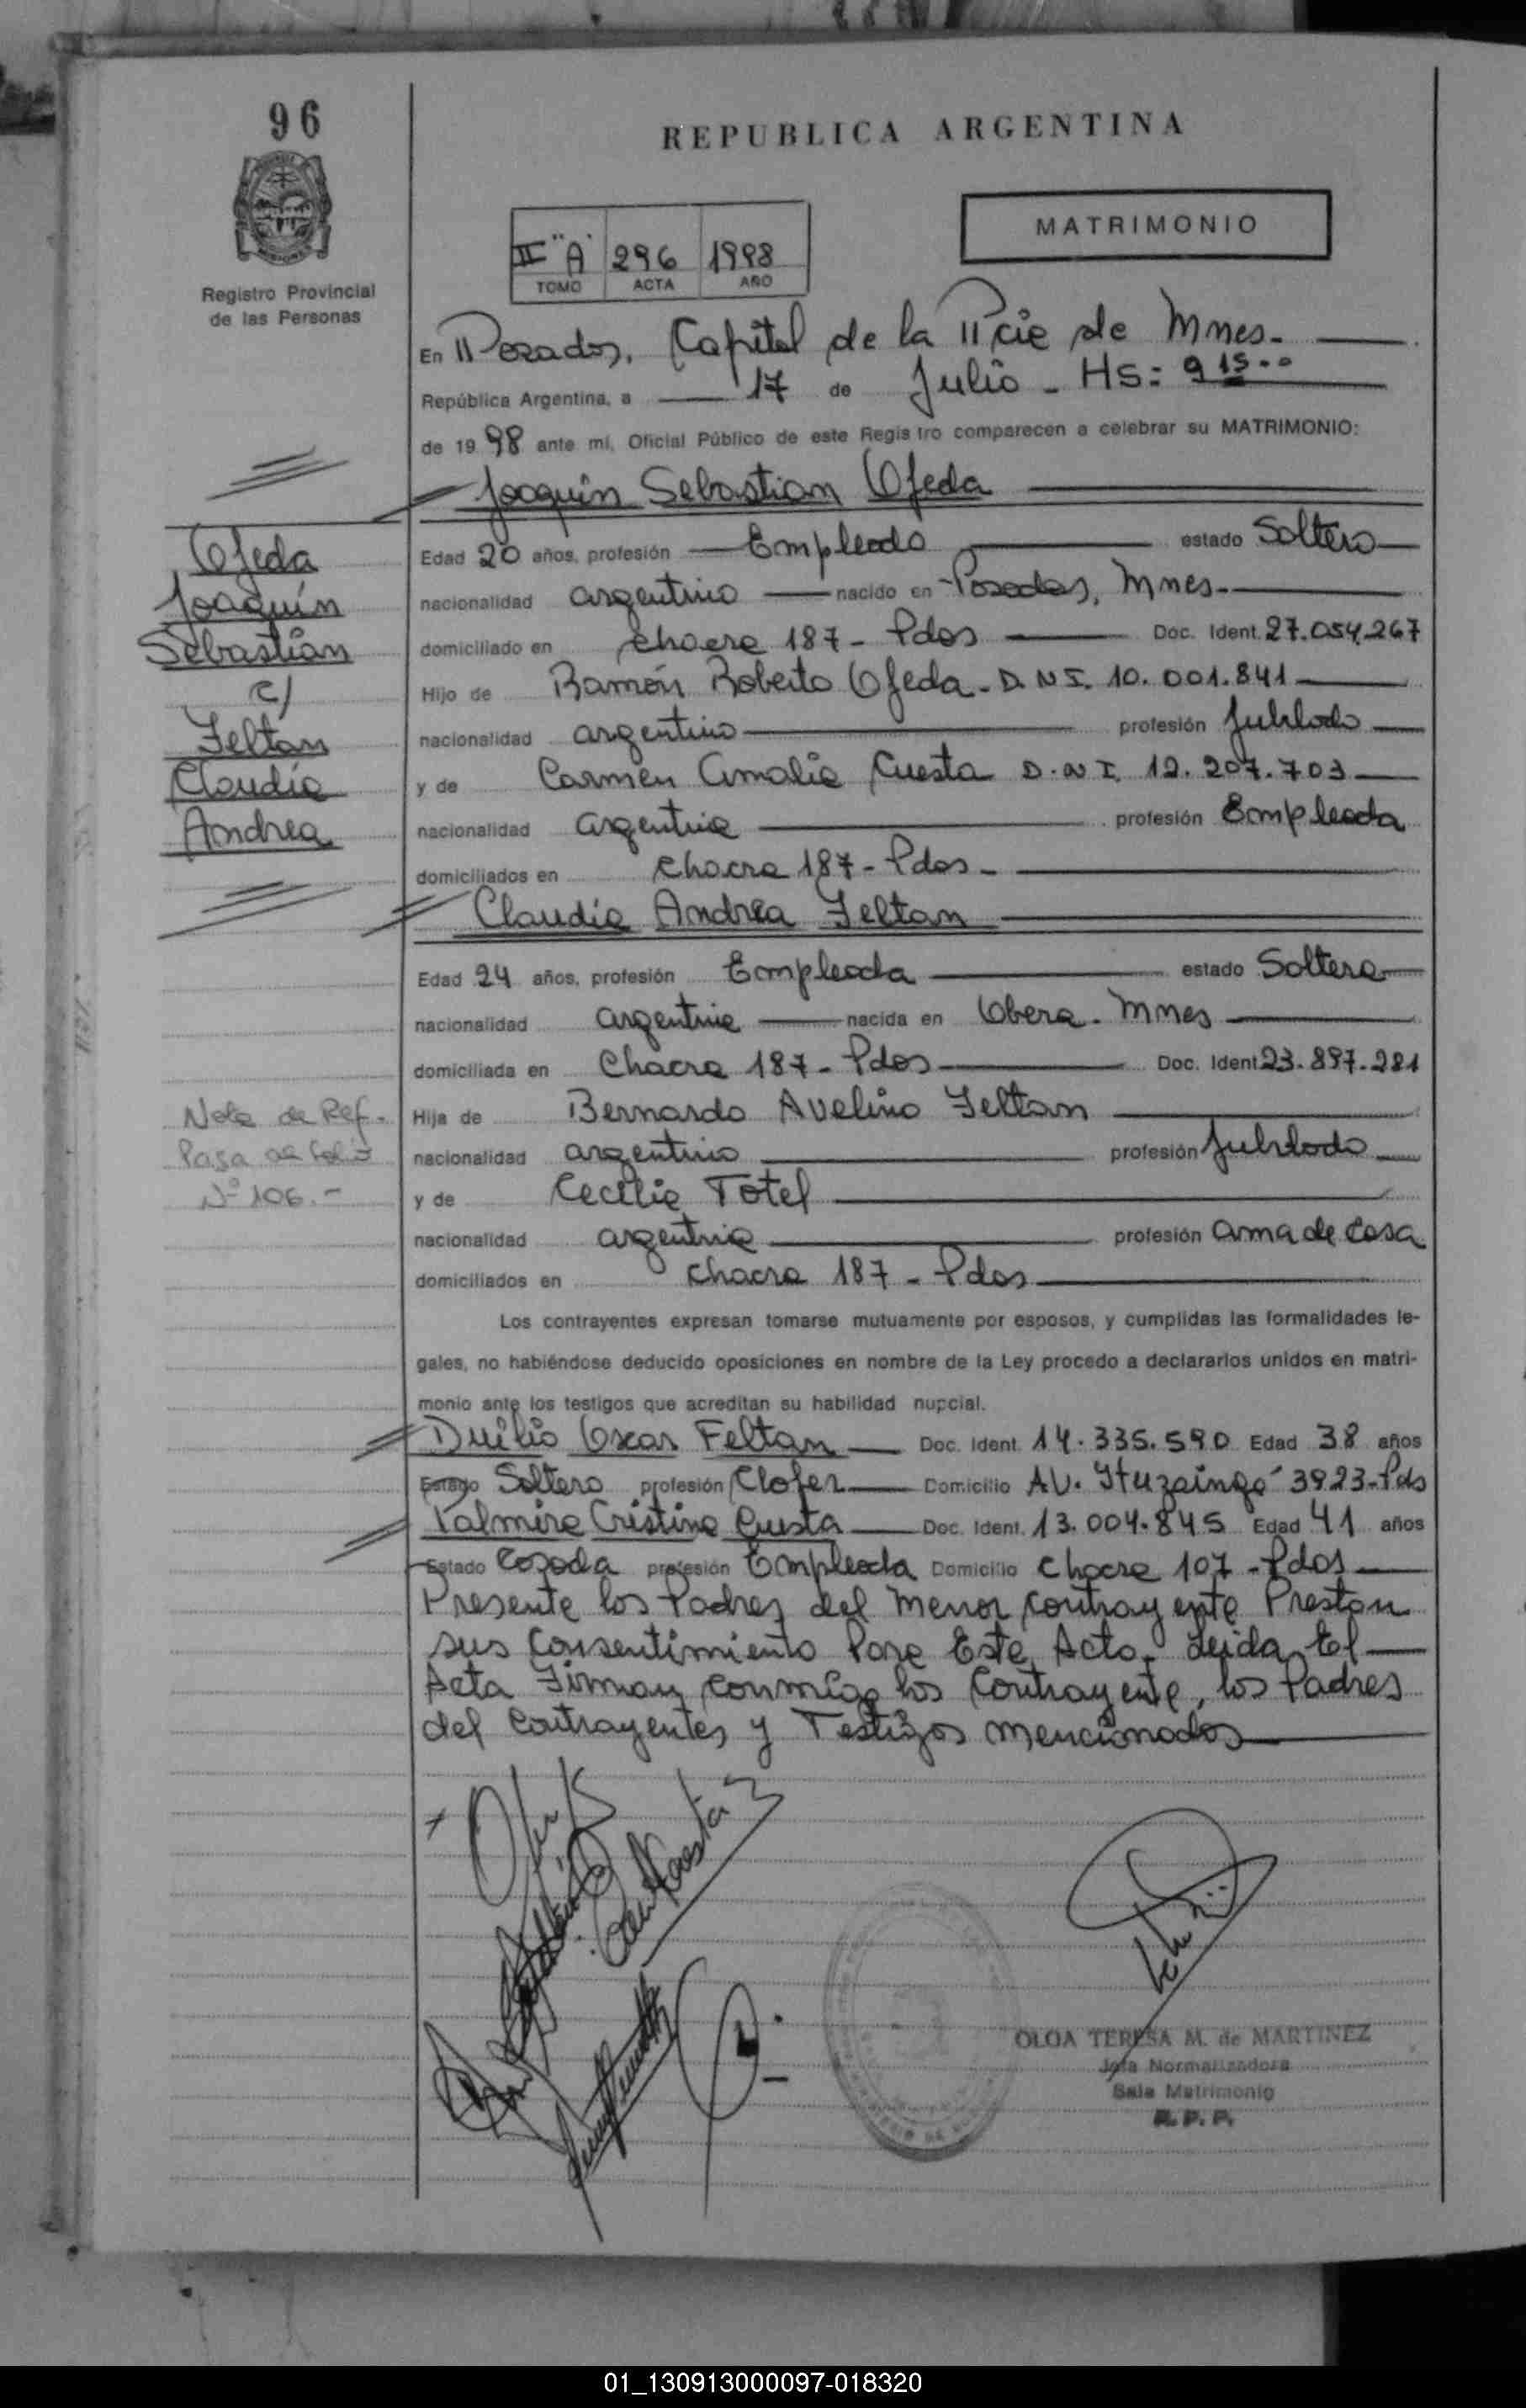 96
REPUBLICA ARGENTINA
MATRIMONIO
II "A" 296 1998
TOMO ACTA AÑO
Registro Provincial
de las Personas
En Posadas, Capital de la Pcie de Mnes.
República Argentina, a 17 de Julio - Hs: 9 15
de 1998 ante mí, Oficial Público de este Registro comparecen a celebrar su MATRIMONIO:
Joaquín Sebastian Ojeda
Ojeda
Joaquín
Sebastián
c/
Feltan
Claudia
Andrea
Edad 20 años, profesión Empleado estado Soltero
nacionalidad argentino nacido en Posadas, Mnes.
domiciliado en Chacra 187 - Pdas Doc. Ident. 27.054.267
Hijo de Ramón Roberto Ojeda - D.N.I. 10.001.841
nacionalidad argentino profesión Jubilado
y de Carmen Amalia Cuesta D.N.I. 12.207.703
nacionalidad argentina profesión Empleada
domiciliados en Chacra 187 - Pdas -
Claudia Andrea Feltan
Edad 24 años, profesión Empleada estado Soltera
nacionalidad argentina nacida en Obera - Mnes
domiciliada en Chacra 187 - Pdas Doc. Ident 23.897.281
Hija de Bernardo Avelino Feltan
nacionalidad argentino profesión Jubilado
y de Cecilia Totel
nacionalidad argentina profesión ama de casa
domiciliados en Chacra 187 - Pdas
Nota de Ref.
Pasa al folio
Nº 106.-
Los contrayentes expresan tomarse mutuamente por esposos, y cumplidas las formalidades le-
gales, no habiéndose deducido oposiciones en nombre de la Ley procedo a declararlos unidos en matri-
monio ante los testigos que acreditan su habilidad nupcial.
Duilio Oscar Feltan Doc. Ident. 14.335.590 Edad 38 años
Estado Soltero profesión Chofer Domicilio AV. Ituzaingó 3923-Pds
Palmira Cristina Cuesta Doc. Ident. 13.004.845 Edad 41 años
Estado Casada profesión Empleada Domicilio Chacra 107 - Pdas
Presente los Padres del menor contrayente Prestan
sus Consentimiento Para Este Acto. Leida El
Acta Firman conmigo los Contrayente, los Padres
del Contrayentes y Testigos mencionados
OLGA TERESA M. de MARTINEZ
Jefa Normalizadora
Sala Matrimonio
R. P. P.
01_130913000097-018320